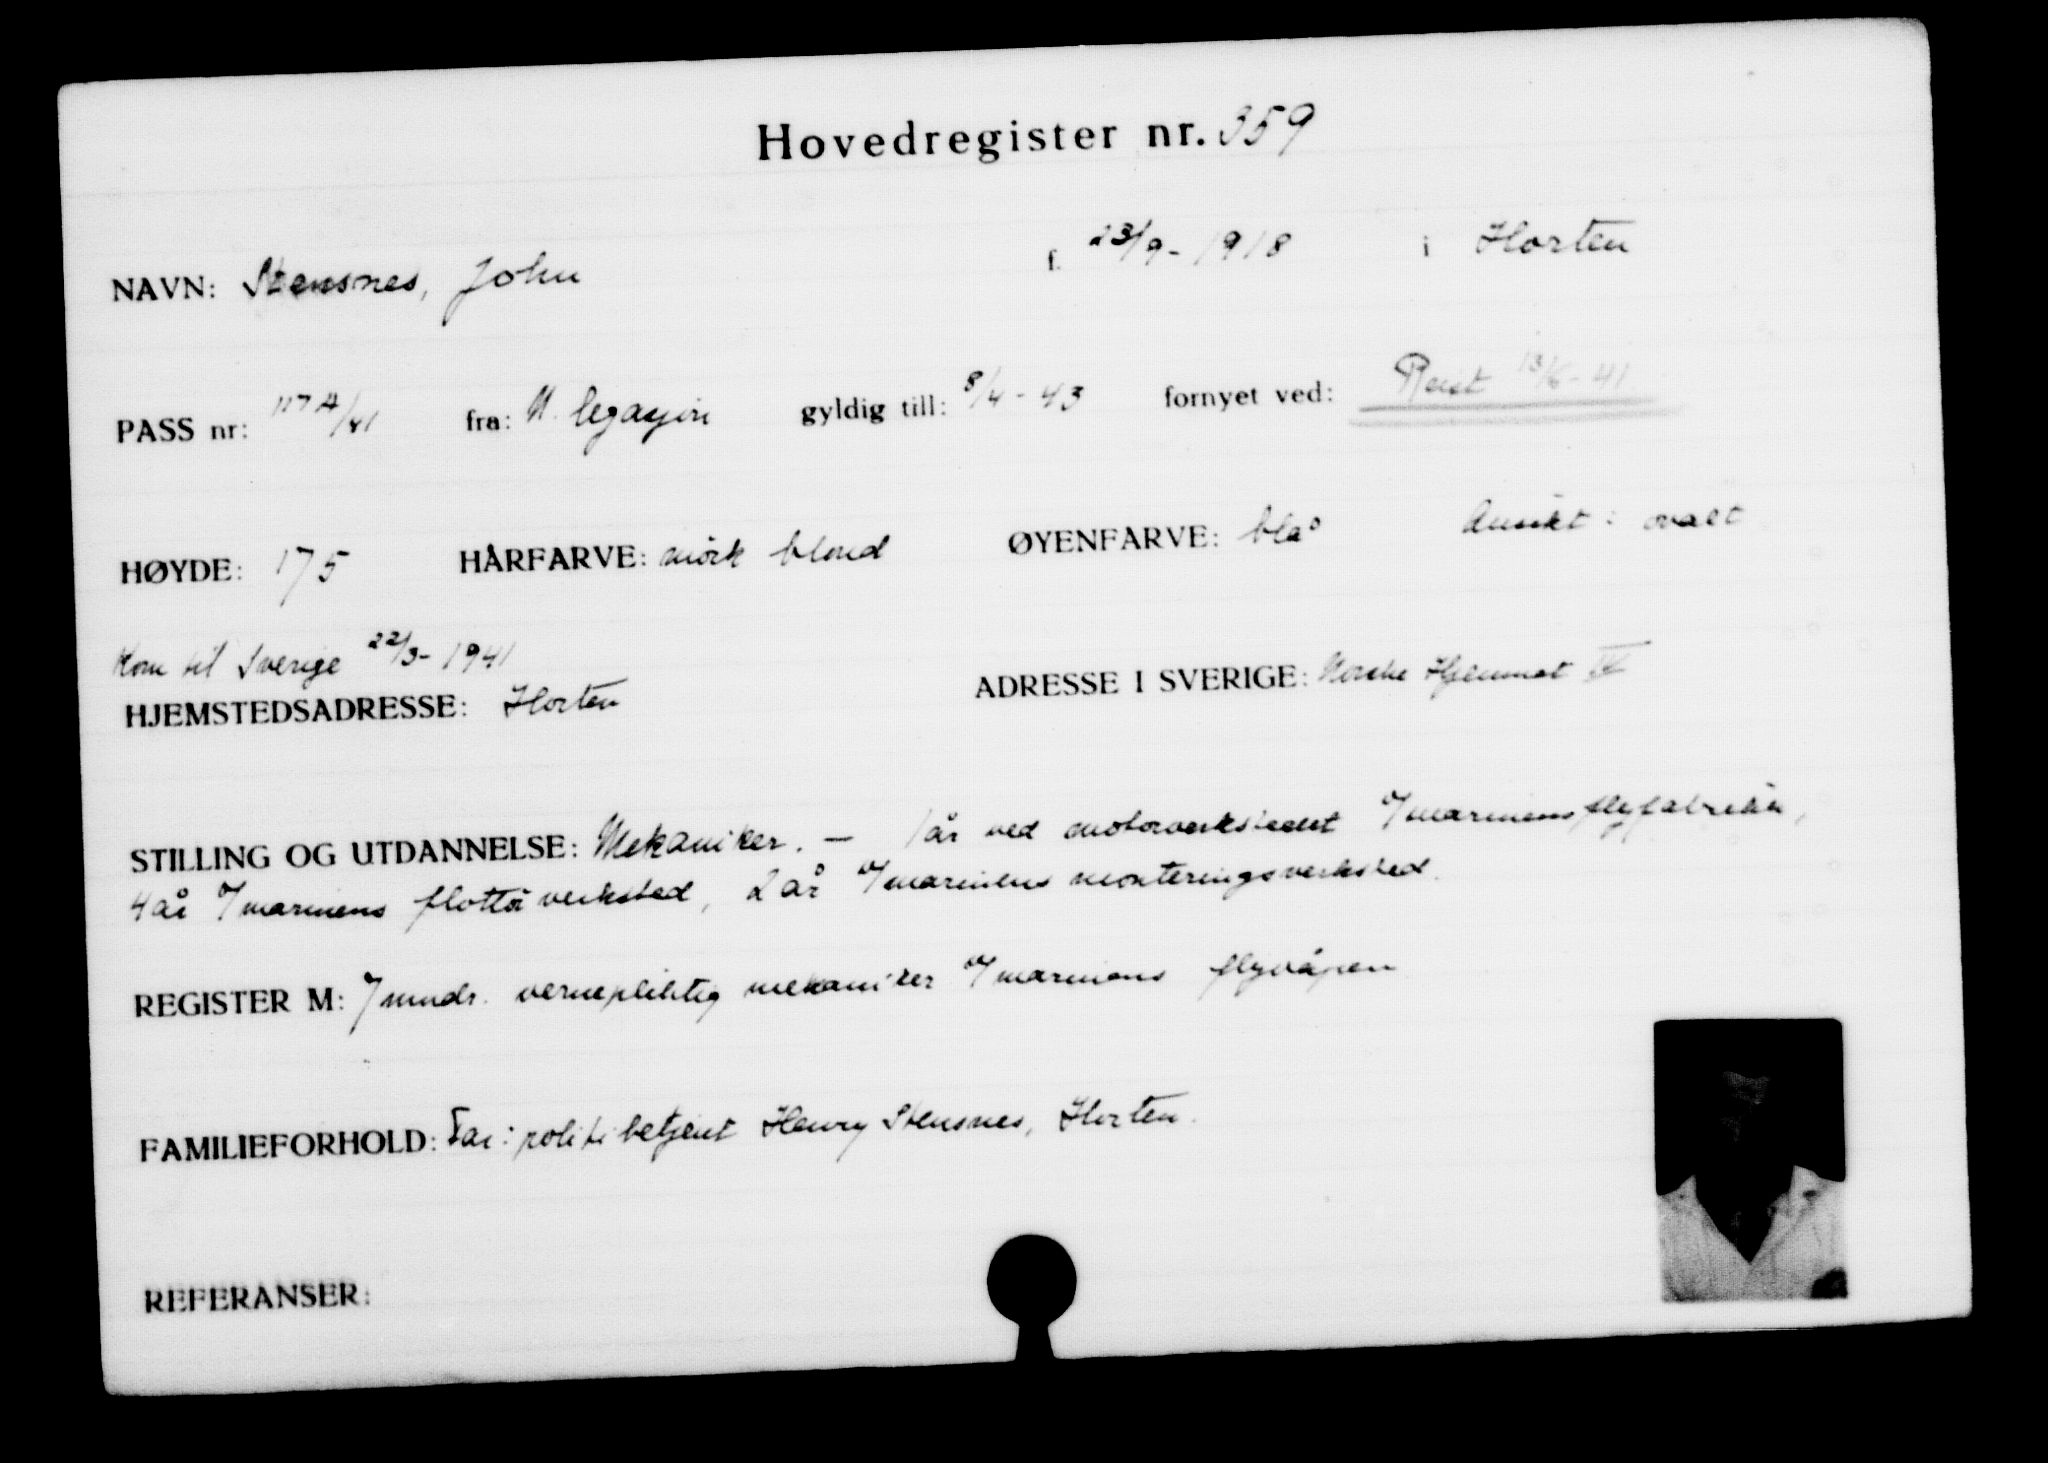 Hovedregister nr. 359
NAVN: Stensnes, John f. 23/9-1918 i Horten
PASS nr: 117A/41 fra: N. legasjon gyldig till: 8/4-43 fornyet ved: Reist 13/6-41
HØYDE: 175 HÅRFARVE: mörk blond ØYENFARVE: blå Ansikt: ovalt
Kom til Sverige 22/3-1941
HJEMSTEDSADRESSE: Horten ADRESSE I SVERIGE: Norske Hjemmet IV
STILLING OG UTDANNELSE: Mekaniker. — 1 år ved motorverkstedet v/marinens flyfabrikk,
4 år v/marinens flottörverksted, 2 år v/marinens monteringsverksted.
REGISTER M: 7 mndr. vernepliktig mekaniker v/marinens flyvåpen
FAMILIEFORHOLD: Far: politibetjent Henry Stensnes, Horten.
REFERANSER: